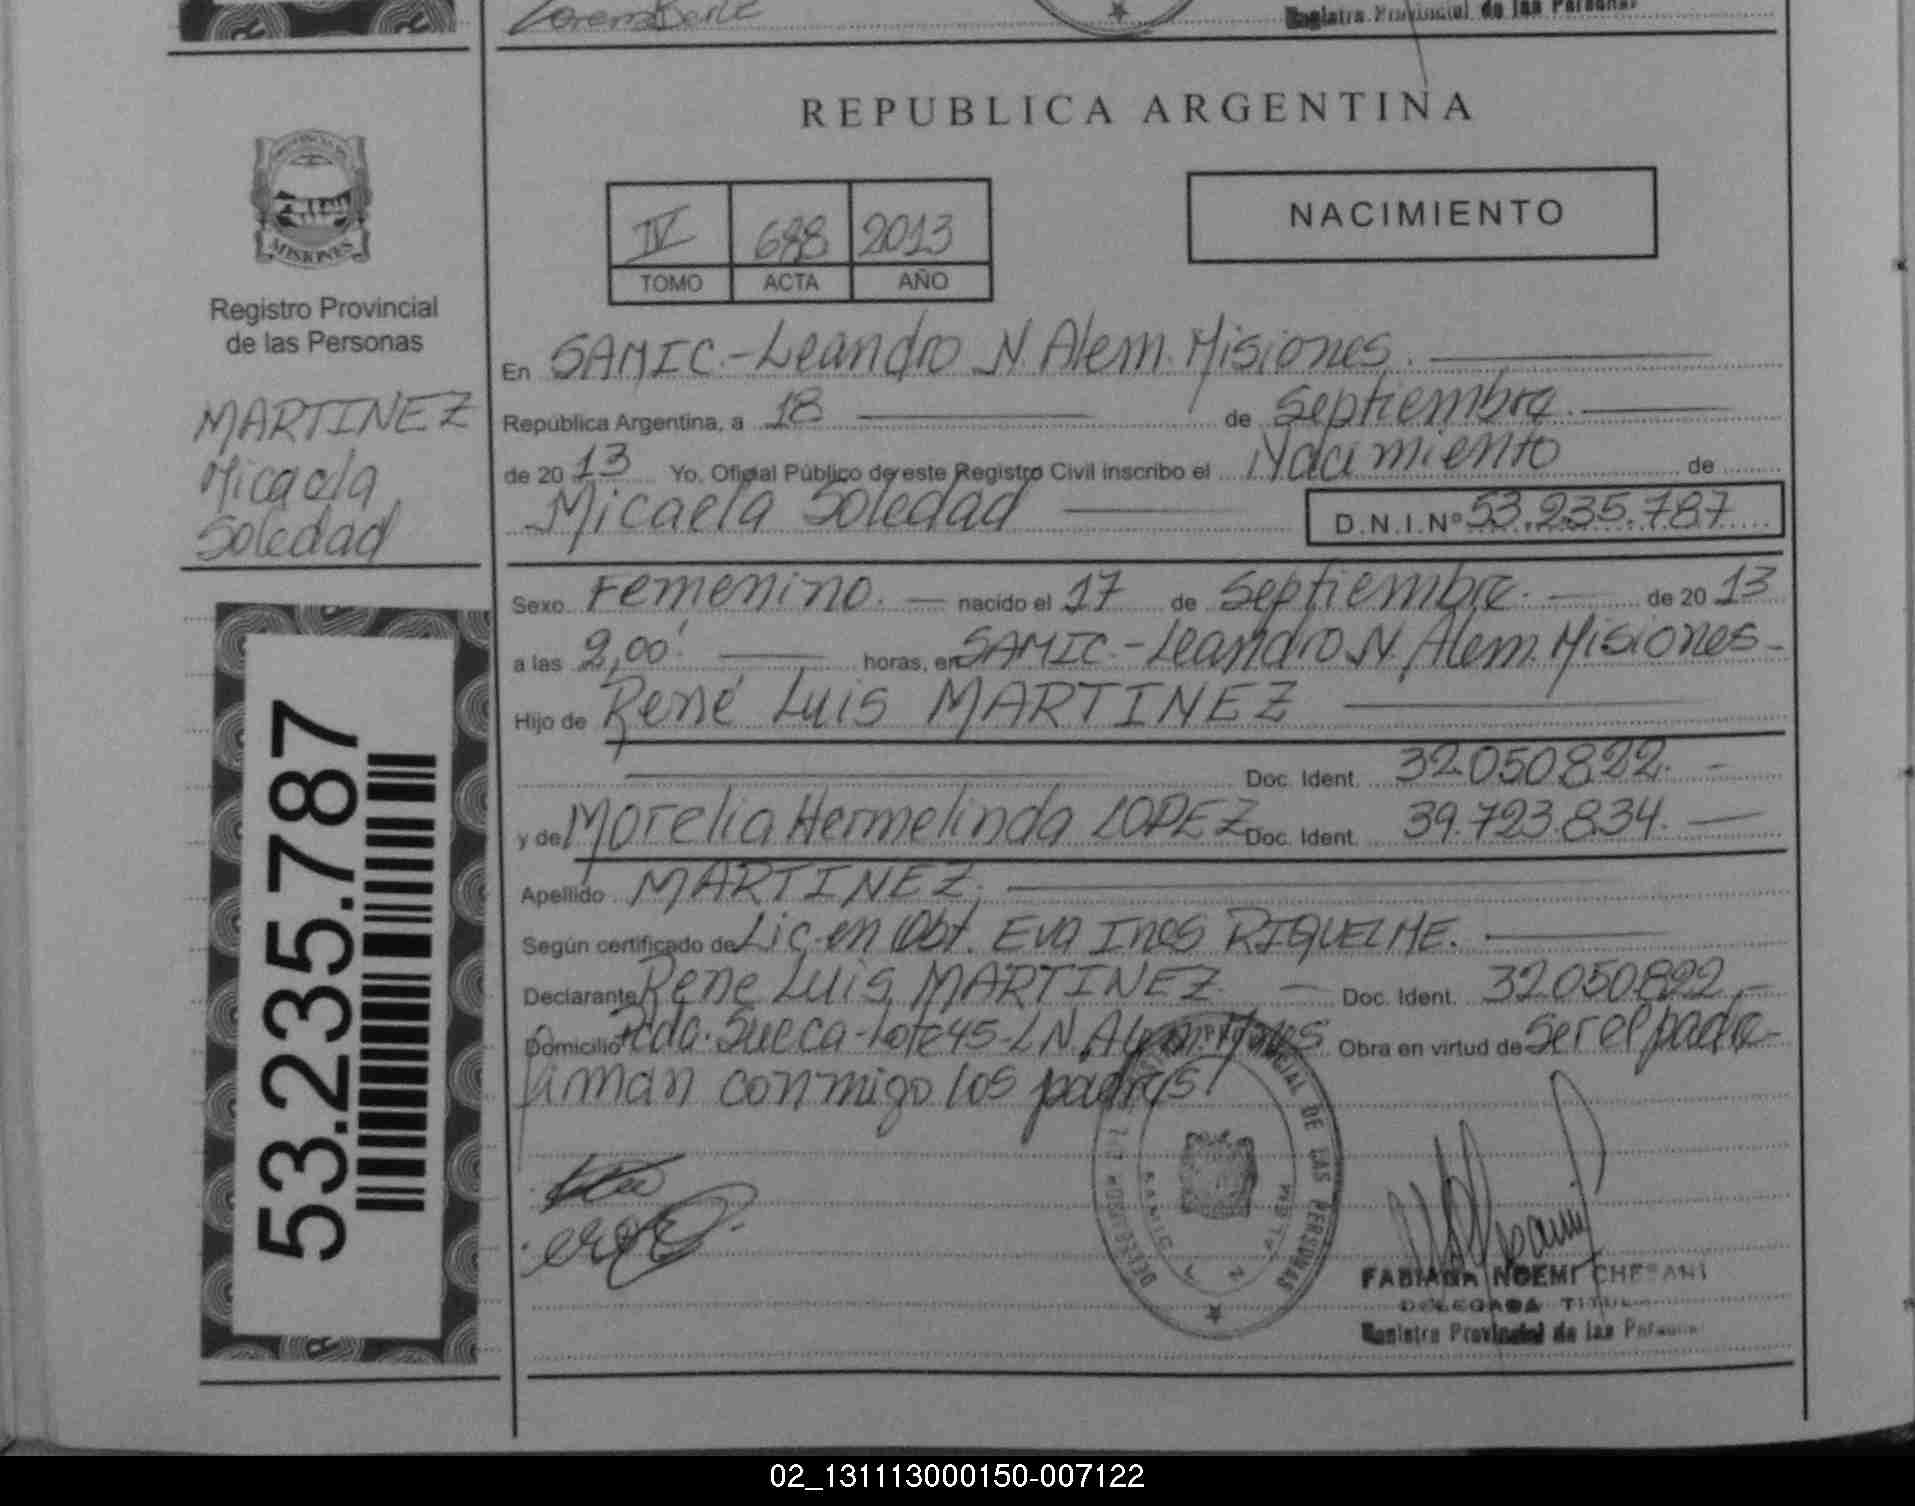 Registro Provincial de las Personas
REPUBLICA ARGENTINA
NACIMIENTO
IV 688 2013
TOMO ACTA AÑO
MISIONES
Registro Provincial
de las Personas
MARTINEZ
Micaela
Soledad
53.235.787
En SAMIC.-Leandro N. Alem. Misiones.
República Argentina, a 18 de Septiembre.
de 2013 Yo, Oficial Público de este Registro Civil inscribo el Nacimiento de
Micaela Soledad D.N.I.Nº 53.235.787
Sexo Femenino. nacido el 17 de Septiembre. de 2013
a las 9,00' horas, en SAMIC.-Leandro N. Alem. Misiones-
Hijo de René Luis MARTINEZ
Doc. Ident. 32.050.822.
y de Morelia Hermelinda LOPEZ Doc. Ident. 39.723.834.
Apellido MARTINEZ.
Según certificado de Lic. en Obt. Eva Ines RIQUELME.
Declarante Rene Luis MARTINEZ Doc. Ident. 32.050.822
Domicilio Pcda. Sueca-Lote 45-L.N. Alem. Mnes Obra en virtud de Ser el padre-
firman conmigo los padres.
SAMIC L N ALEM
FABIANA NOEMI CHESANI
DELEGADA TITUL
Registro Provincial de las Personas
02_131113000150-007122